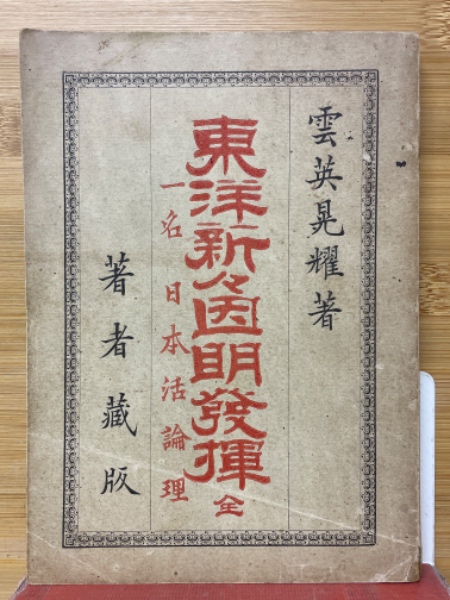 雲英晃耀著
東洋新々因明發揮全
一名日本活論理
著者藏版